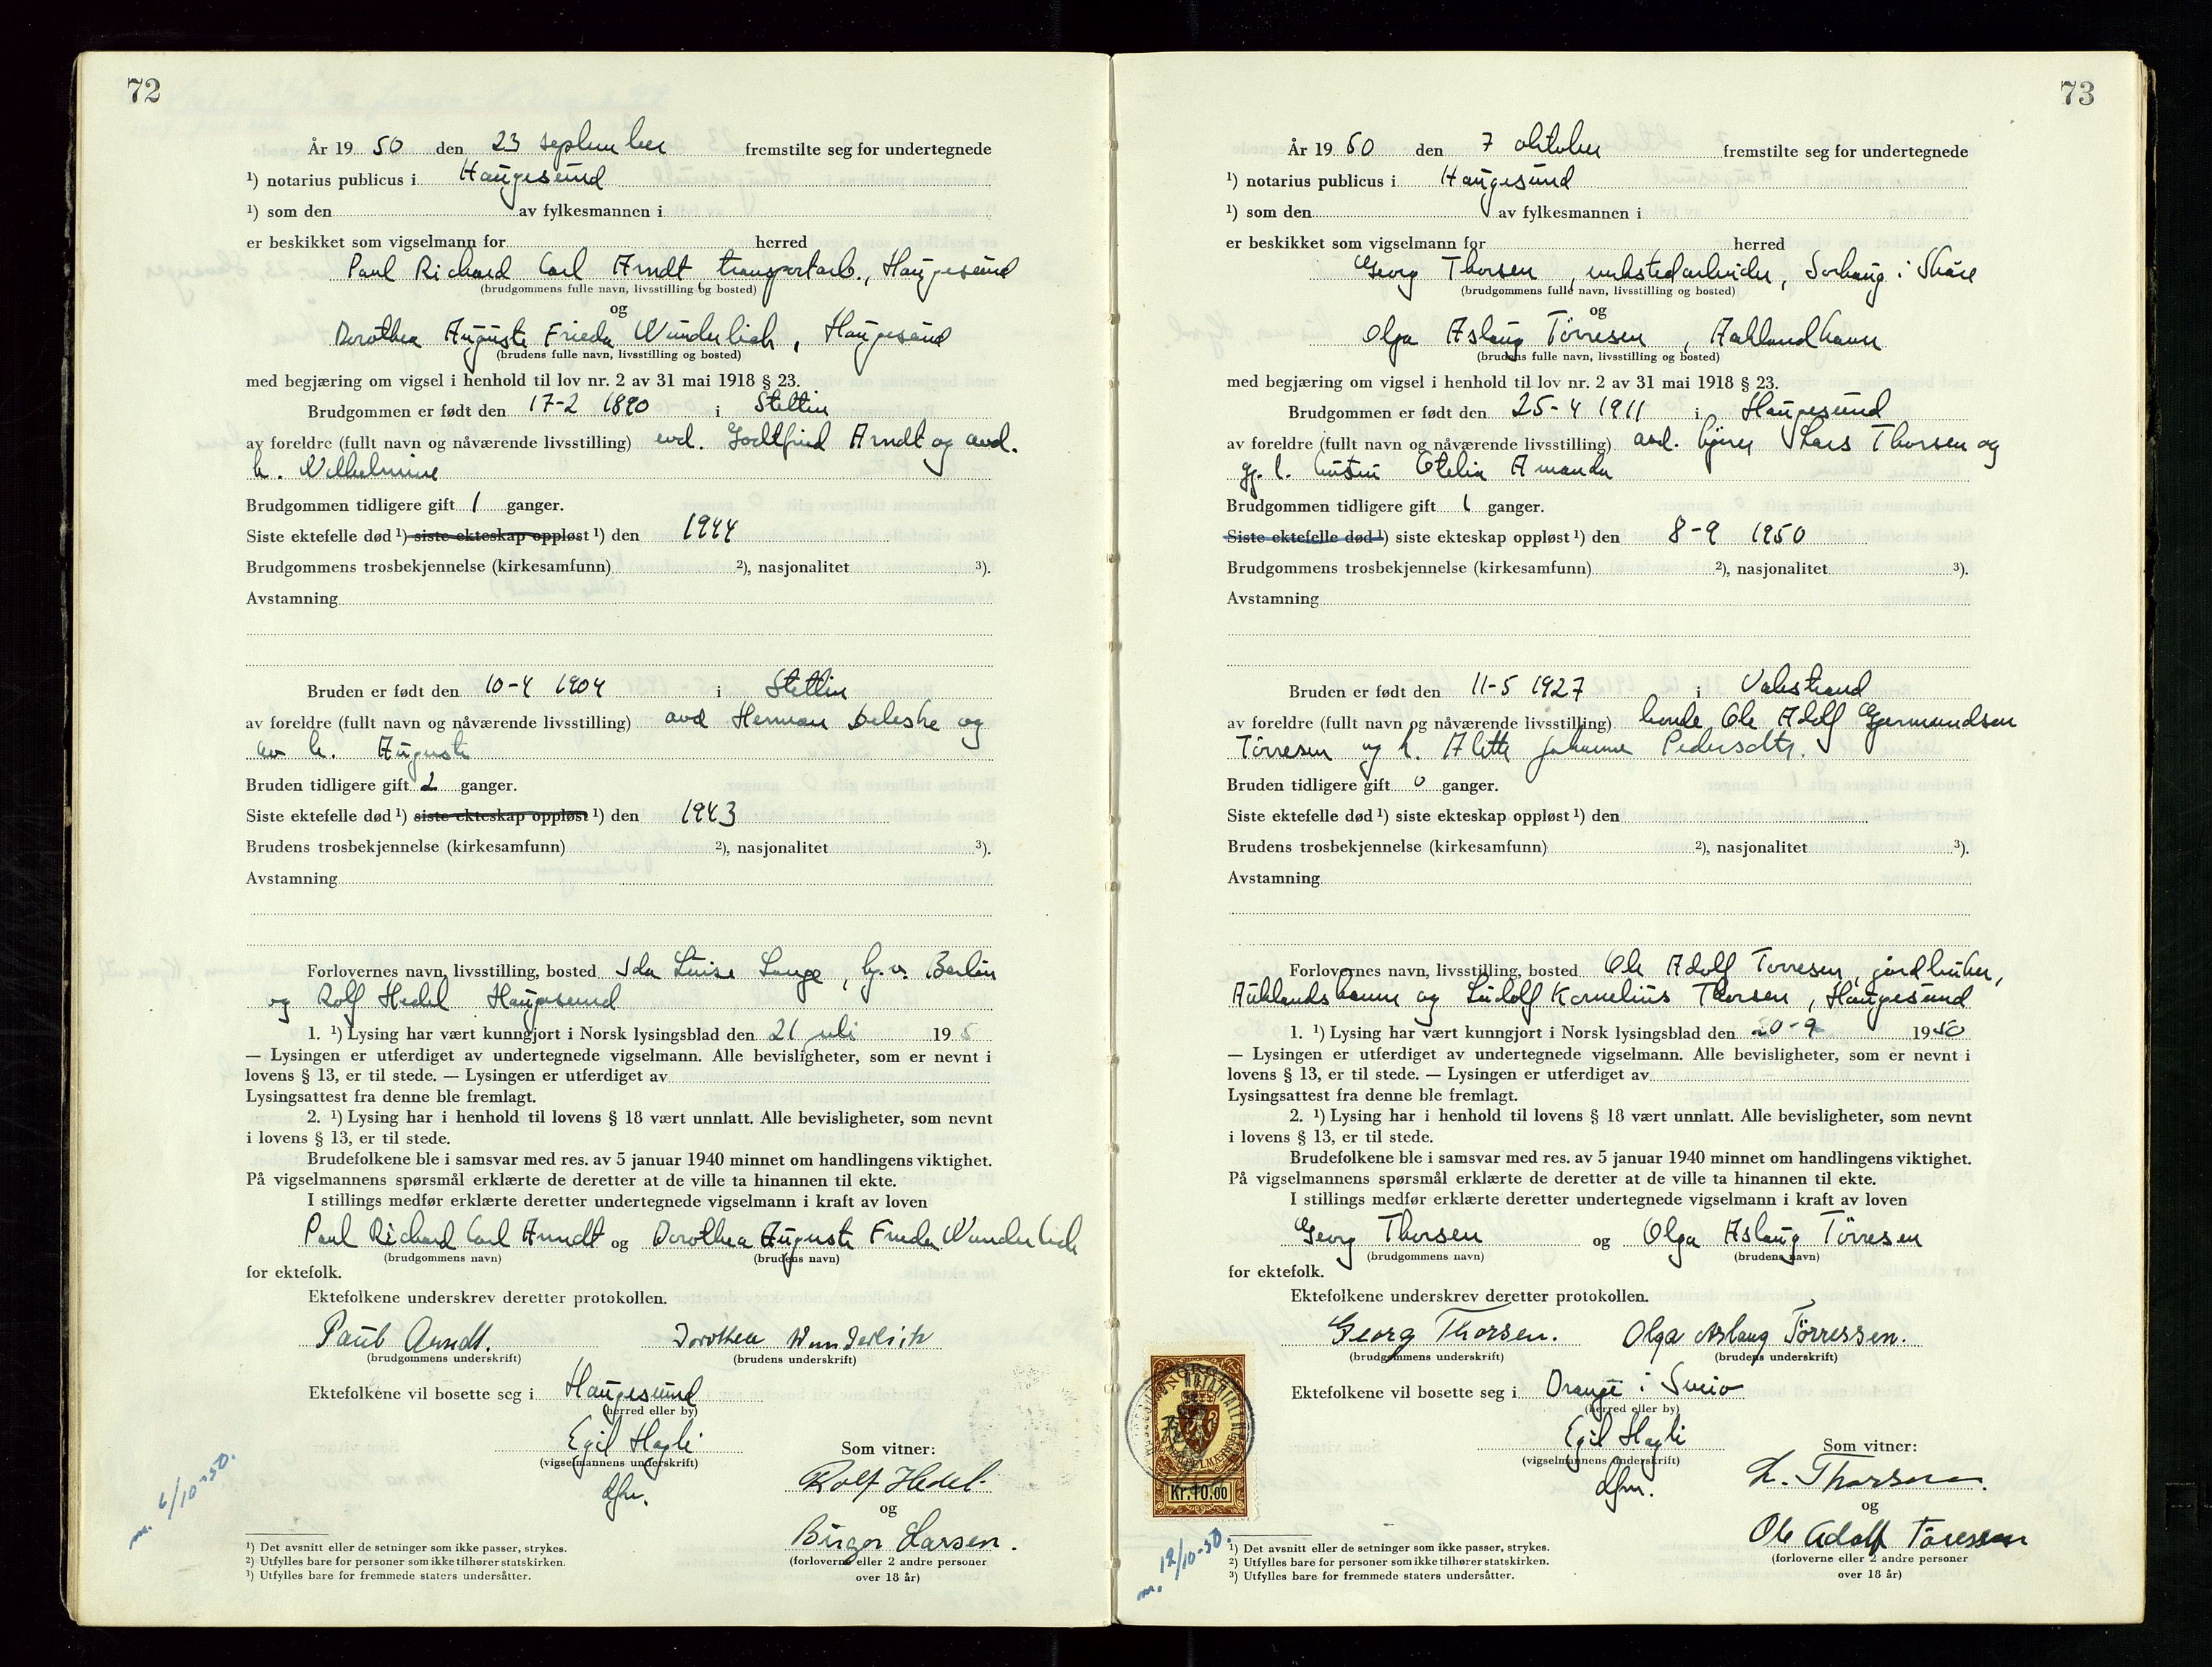 72
År 19 50 den 23 september fremstilte seg for undertegnede
¹) notarius publicus i Haugesund
¹) som den av fylkesmannen i
er beskikket som vigselmann for herred
Paul Richard Carl Arndt transportarb., Haugesund
(brudgommens fulle navn, livsstilling og bosted)
og
Dorothea Auguste Frieda Wunderlich, Haugesund
(brudens fulle navn, livsstilling og bosted)
med begjæring om vigsel i henhold til lov nr. 2 av 31 mai 1918 § 23.
Brudgommen er født den 17-2 1890 i Stettin
av foreldre (fullt navn og nåværende livsstilling) avd. Godtfried Arndt og avd.
h. Wilhelmine
Brudgommen tidligere gift 1 ganger.
Siste ektefelle død ¹) siste ekteskap oppløst ¹) den 1944
Brudgommens trosbekjennelse (kirkesamfunn) ²), nasjonalitet ³).
Avstamning
Bruden er født den 10-4 1904 i Stettin
av foreldre (fullt navn og nåværende livsstilling) avd Herman og
av h. Auguste
Bruden tidligere gift 2 ganger.
Siste ektefelle død ¹) siste ekteskap oppløst ¹) den 1943
Brudens trosbekjennelse (kirkesamfunn) ²), nasjonalitet ³).
Avstamning
Forlovernes navn, livsstilling, bosted Ida Luise Lange, Berlin
og Rolf Hedel Haugesund
1. ¹) Lysing har vært kunngjort i Norsk lysingsblad den 21 juli 195
— Lysingen er utferdiget av undertegnede vigselmann. Alle bevisligheter, som er nevnt i
lovens § 13, er til stede. — Lysingen er utferdiget av
Lysingsattest fra denne ble fremlagt.
2. ¹) Lysing har i henhold til lovens § 18 vært unnlatt. Alle bevisligheter, som nevnt
i lovens § 13, er til stede.
Brudefolkene ble i samsvar med res. av 5 januar 1940 minnet om handlingens viktighet.
På vigselmannens spørsmål erklærte de deretter at de ville ta hinannen til ekte.
I stillings medfør erklærte deretter undertegnede vigselmann i kraft av loven
Paul Richard Carl Arndt og Dorothea Auguste Frieda Wunderlich
(brudgommens navn) (brudens navn)
for ektefolk.
Ektefolkene underskrev deretter protokollen.
Paul Arndt. Dorothea Wunderlich
(brudgommens underskrift) (brudens underskrift)
Ektefolkene vil bosette seg i Haugesund
(herred eller by)
Egil Hagli
(vigselmannens underskrift)
dfm.
Som vitner:
Rolf Hedel
og
Birger Larsen.
(forloverne eller 2 andre personer
over 18 år)
m. 6/10-50.
¹) Det avsnitt eller de setninger som ikke passer, strykes.
²) Utfylles bare for personer som ikke tilhører statskirken.
³) Utfylles bare for fremmede staters undersåtter.
73
År 19 50 den 7 oktober fremstilte seg for undertegnede
¹) notarius publicus i Haugesund
¹) som den av fylkesmannen i
er beskikket som vigselmann for herred
Georg Thorsen, verkstedarbeider, Sørhaug i Skåre
(brudgommens fulle navn, livsstilling og bosted)
og
Olga Aslaug Tørresen, Auklandhavn
(brudens fulle navn, livsstilling og bosted)
med begjæring om vigsel i henhold til lov nr. 2 av 31 mai 1918 § 23.
Brudgommen er født den 25-4 1911 i Haugesund
av foreldre (fullt navn og nåværende livsstilling) avd. Lars Thorsen og
gj. l. hustru Otelia Amanda
Brudgommen tidligere gift 1 ganger.
Siste ektefelle død ¹) siste ekteskap oppløst ¹) den 8-9 1950
Brudgommens trosbekjennelse (kirkesamfunn) ²), nasjonalitet ³).
Avstamning
Bruden er født den 11-5 1927 i Valestrand
av foreldre (fullt navn og nåværende livsstilling) bonde Ole Adolf Germundsen
Tørresen og h. Alette Johanne Pedersdtr.
Bruden tidligere gift 0 ganger.
Siste ektefelle død ¹) siste ekteskap oppløst ¹) den
Brudens trosbekjennelse (kirkesamfunn) ²), nasjonalitet ³).
Avstamning
Forlovernes navn, livsstilling, bosted Ole Adolf Torresen, jordbruker,
Auklandshavn og Ludolf Kornelius Thorsen, Haugesund
1. ¹) Lysing har vært kunngjort i Norsk lysingsblad den 20-9 1950
— Lysingen er utferdiget av undertegnede vigselmann. Alle bevisligheter, som er nevnt i
lovens § 13, er til stede. — Lysingen er utferdiget av
Lysingsattest fra denne ble fremlagt.
2. ¹) Lysing har i henhold til lovens § 18 vært unnlatt. Alle bevisligheter, som nevnt
i lovens § 13, er til stede.
Brudefolkene ble i samsvar med res. av 5 januar 1940 minnet om handlingens viktighet.
På vigselmannens spørsmål erklærte de deretter at de ville ta hinannen til ekte.
I stillings medfør erklærte deretter undertegnede vigselmann i kraft av loven
Georg Thorsen og Olga Aslaug Tørresen
(brudgommens navn) (brudens navn)
for ektefolk.
Ektefolkene underskrev deretter protokollen.
Georg Thorsen. Olga Aslaug Tørressen.
(brudgommens underskrift) (brudens underskrift)
Ektefolkene vil bosette seg i Drange i Sveio
(herred eller by)
Egil Hagli
(vigselmannens underskrift)
dfm.
Som vitner:
L. Thorsen.
og
Ole Adolf Tøressen
(forloverne eller 2 andre personer
over 18 år)
Kr. 10.00
m. 12/10-50.
¹) Det avsnitt eller de setninger som ikke passer, strykes.
²) Utfylles bare for personer som ikke tilhører statskirken.
³) Utfylles bare for fremmede staters undersåtter.